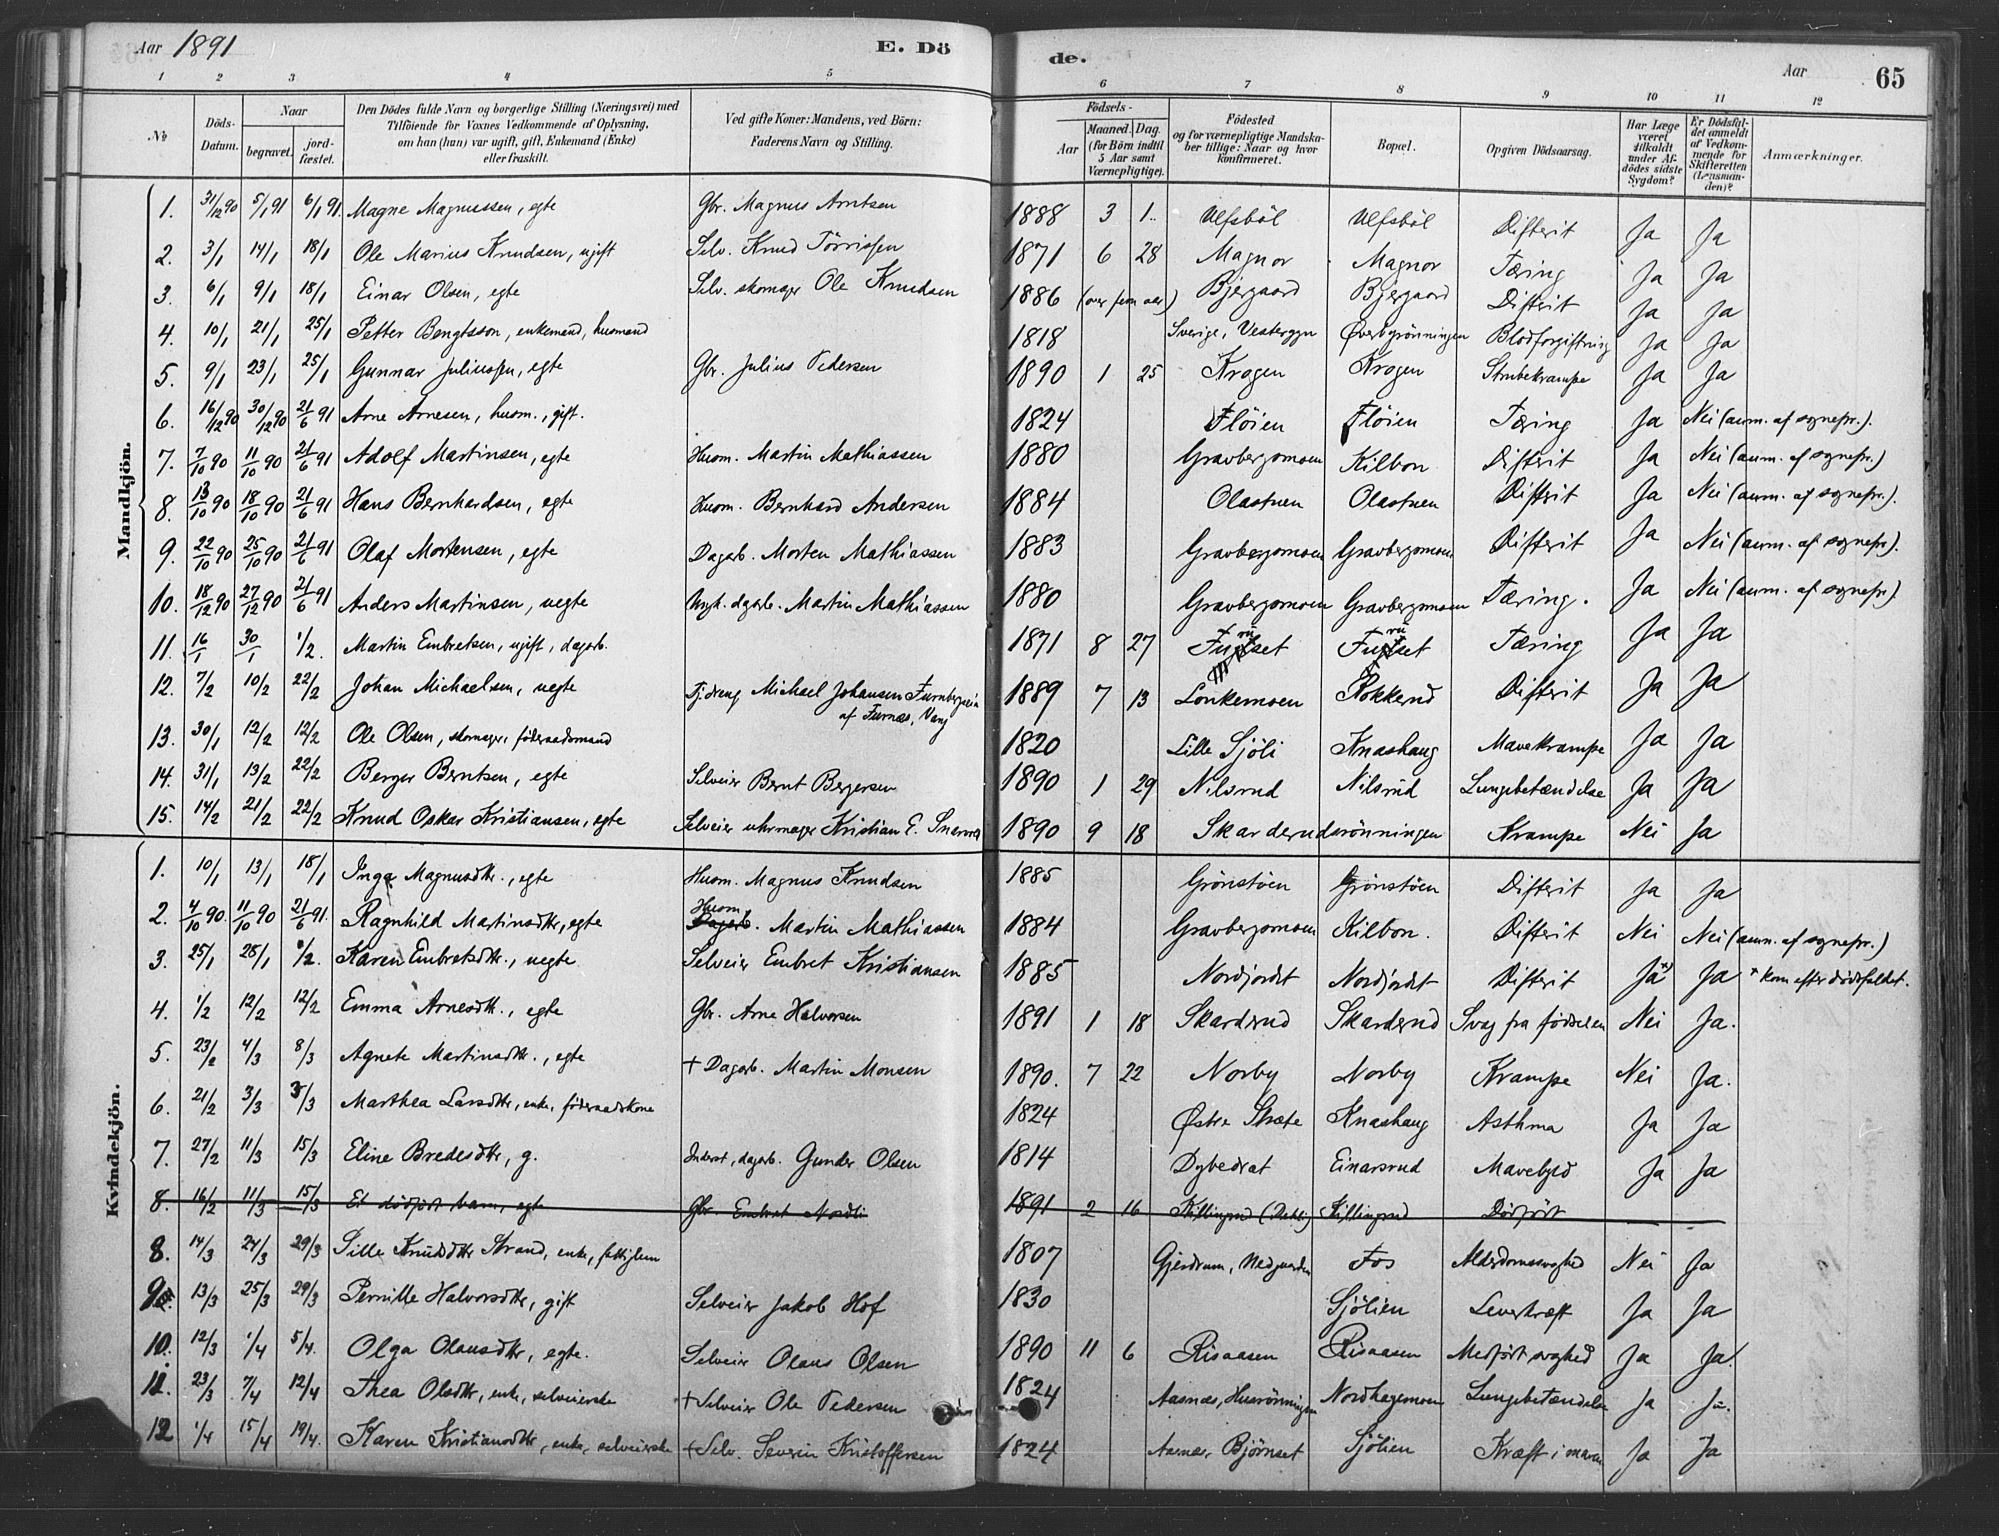 Aar 1891 E. Dö de. Aar 65
1 2 3 4 5 6 7 8 9 10 11 12
No Döds-Datum. Naar begravet. jordfæstet. Den Dödes fulde Navn og borgerlige Stilling (Næringsvei) med Tilföiende for Voxnes Vedkommende af Oplysning, om han (hun) var ugift, gift, Enkemand (Enke) eller fraskilt. Ved gifte Koner: Mandens, ved Börn: Faderens Navn og Stilling. Födsels- Aar Maaned. Dag. (for Börn indtil 5 Aar samt Værnepligtige). Födested og for værnepligtige Mandskaber tillige: Naar og hvor konfirmeret. Bopæl. Opgiven Dödsaarsag. Har Læge været tilkaldt under Afdödes sidste Sygdom? Er Dödsfaldet anmeldt af Vedkommende for Skifteretten (Lensmanden)? Anmærkninger.
Mandkjön.
1. 31/12 90 5/1 91 6/1 91 Magne Magnussen, egte Gbr. Magnus Arntsen 1888 3 1. Ulfsböl Ulfsböl Difterit Ja Ja
2. 3/1 14/1 18/1 Ole Marius Knudsen, ugift Selv. Knud Törrissen 1871 6 28 Magnor Magnor Tæring Ja Ja
3. 6/1 9/1 18/1 Einar Olsen, egte Selv. skomager Ole Knudsen 1886 (over fem aar) Bjergaard Bjergaard Difterit Ja Ja
4. 10/1 21/1 25/1 Petter Bengtsson, enkemand, husmand 1818 Sverige, Øverbyrönningen Blodforgiftning Ja Ja
5. 9/1 23/1 25/1 Gunnar Juliussen, egte Gbr. Julius Pedersen 1890 1 25 Krogen Krogen Strubekrampe Ja Ja
6. 16/12 90 30/12 90 21/6 91 Arne Arnesen, husm., gift. 1824 Flöien Flöien Tæring Ja Nei (anm. af sognepr.).
7. 7/10 90 11/10 90 21/6 91 Adolf Martinsen, egte Husm. Martin Mathiassen 1880 Gravbergsmoen Kilbon Difterit Ja Nei (anm. af sognepr.)
8. 13/10 90 18/10 90 21/6 91 Hans Bernhardsen, egte Husm. Bernhard Andersen 1884 Olastuen Olastuen Difterit Ja Nei (anm. af sognepr.).
9. 22/10 90 25/10 90 21/6 91 Olaf Mortensen, egte Dagarb. Morten Mathiassen 1883 Gravbergsmoen Gravbergsmoen Difterit Ja Nei (anm. af sognepr.).
10. 18/12 90 27/12 90 21/6 91 Anders Martinsen, uegte Ungk. dagarb. Martin Mathiassen 1880 Gravbergsmoen Gravbergsmoen Tæring. Ja Nei (anm. af sognepr.)
11. 16/1 30/1 1/2. Martin Embretsen, ugift, dagarb. 1871 8 27 Furuset Furuset Tæring Ja Ja
12. 7/2 10/2 22/2 Johan Michaelsen, uegte Tj.dreng Michael Johansen 1889 7 13 Lonkemoen Rokkerud Difterit Ja Ja
af Furnæs, Vang
13. 30/1 12/2 12/2 Ole Olsen, skomager, föderaadsmand 1820 Lille Sjöli Knashaug Mavekrampe Ja Ja
14. 31/1 13/2 22/2 Berger Berntsen, egte Selveier Bernt Bergersen 1890 1 29 Nilsrud Nilsrud Lungebetændelse Ja Ja
15. 14/2 21/2 22/2 Knud Oskar Kristiansen, egte Selveier uhrmager Kristian E. 1890 9 18 Skarderudsrönningen Krampe Nei Ja
Kvindekjön.
1. 10/1 13/1 18/1 Inga Magnusdtr., egte Husm. Magnus Knudsen 1885 Grönstöen Grönstöen Difterit Ja Ja
2. 4/10 90. 11/10 90 21/6 91. Ragnhild Martinsdtr., egte Husm Dagarb. Martin Mathiassen 1884 Gravbergsmoen Kilbon. Difterit Nei Nei (anm. af sognepr.)
3. 25/1 28/1 1/2. Karen Embretsdtr., uegte Selveier Embret Kristiansen 1885 Nordjordet Nordjordet Difterit Ja *) Ja * kom efter dödsfaldet.
4. 1/2 12/2 12/2 Emma Arnesdtr., egte Gbr. Arne Halvorsen 1891 1 18 Skarderud Skarderud Svag fra födselen Nei Ja.
5. 23/2 4/3 8/3 Agnete Martinsdtr., egte + Dagarb. Martin Monsen 1890. 7 22 Norby Norby Krampe Nei Ja.
6. 21/2 3/3 3/3 Marthea Larsdtr., enke, föderaadskone 1824 Østre Knashaug Asthma Ja Ja
7. 27/2 11/3 15/3 Eline Bredesdtr, g. Inderst, dagarb. Gunder Olsen 1814 Dybedrat Einarsrud Mavebyld Ja Ja
8. 16/2 11/3 15/3 Et dödfödt barn, egte Gbr. Embret Nordli 1891 2 16 Killingrud Dödfödt
8. 14/3 24/3 29/3 Sille Knudsdtr Strand, enke, fattiglem 1807 Gjerdrum, Fos Alderdomssvaghed Nei Ja
9. 13/3 25/3 29/3 Pernille Halvorsdtr, gift Selveier Jakob Hof 1830 Sjölien Leverkræft Ja Ja
10. 12/3 1/4 5/4. Olga Olausdtr, egte. Selveier Olaus Olsen 1890 11 6 Risaasen Risaasen Medfödt svaghed Ja Ja.
11. 23/3 7/4 12/4 Thea Olsdtr, enke, selveierske + Selveier Ole Pedersen 1824 Aasnæs, Husrönningen Nordhagemoen Lungebetændelse Ja Ja.
12 1/4 15/4 19/4. Karen Kristiansdtr, enke, selveierske + Selv. Severin Kristoffersen 1824 Aasnæs, Bjørnset Sjölien Kræft i maven Ja Ja